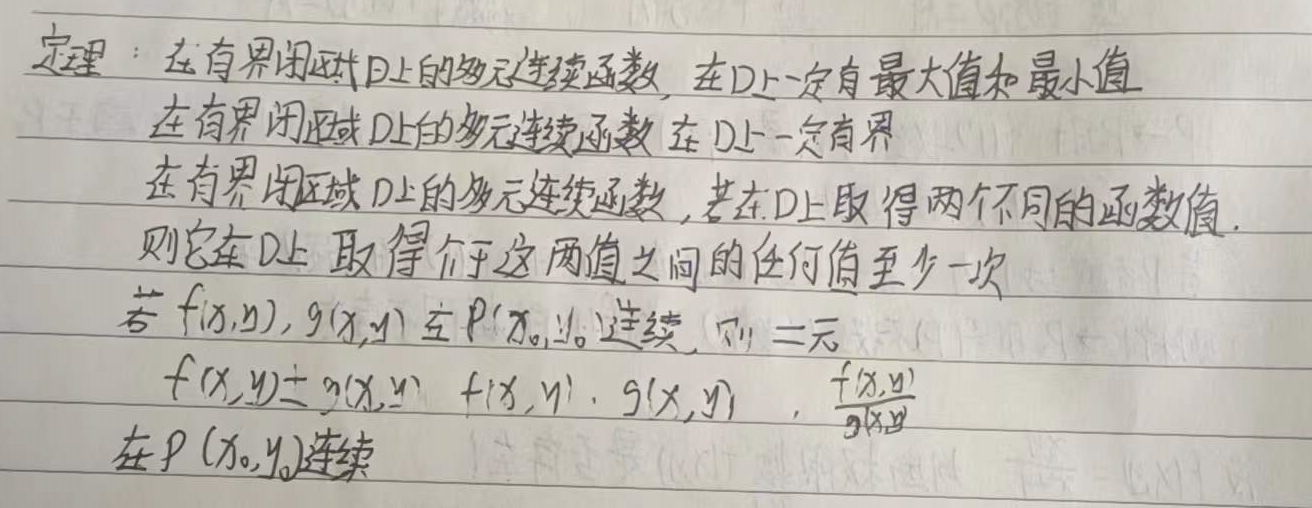 定理：在有界闭区域D上的多元连续函数，在D上一定有最大值和最小值
在有界闭区域D上的多元连续函数在D上一定有界
在有界闭区域D上的多元连续函数，若在D上取得两个不同的函数值.
则它在D上取得介于这两值之间的任何值至少一次
若 f(x,y), g(x,y) 在 P(x₀,y₀)连续，则二元
f(x,y)±g(x,y) f(x,y)·g(x,y) , f(x,y)/g(x,y)
在P(x₀,y₀)连续